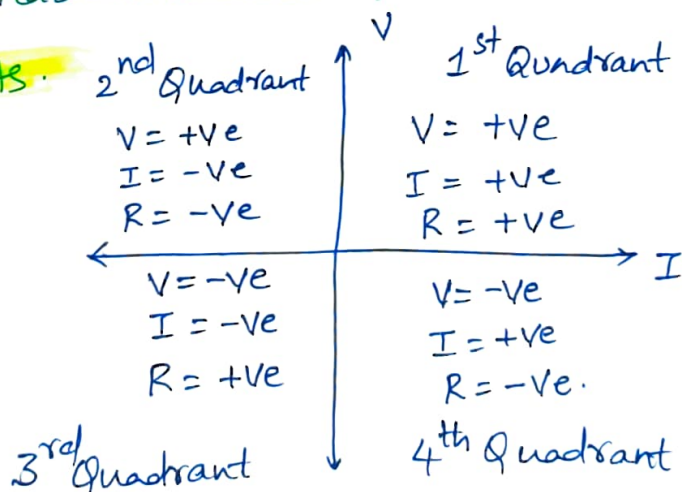 ts.
V
2nd Quadrant
V = +ve
I = -ve
R = -ve
1st Qundrant
V = +ve
I = +ve
R = +ve
I
V = -ve
I = -ve
R = +ve
3rd Quadrant
V = -ve
I = +ve
R = -ve.
4th Quadrant